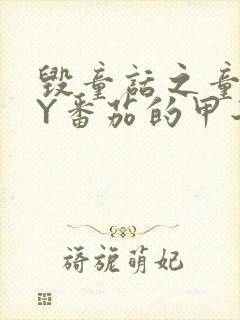 毁童话之童
Y番茄的甲
旖旎萌妃